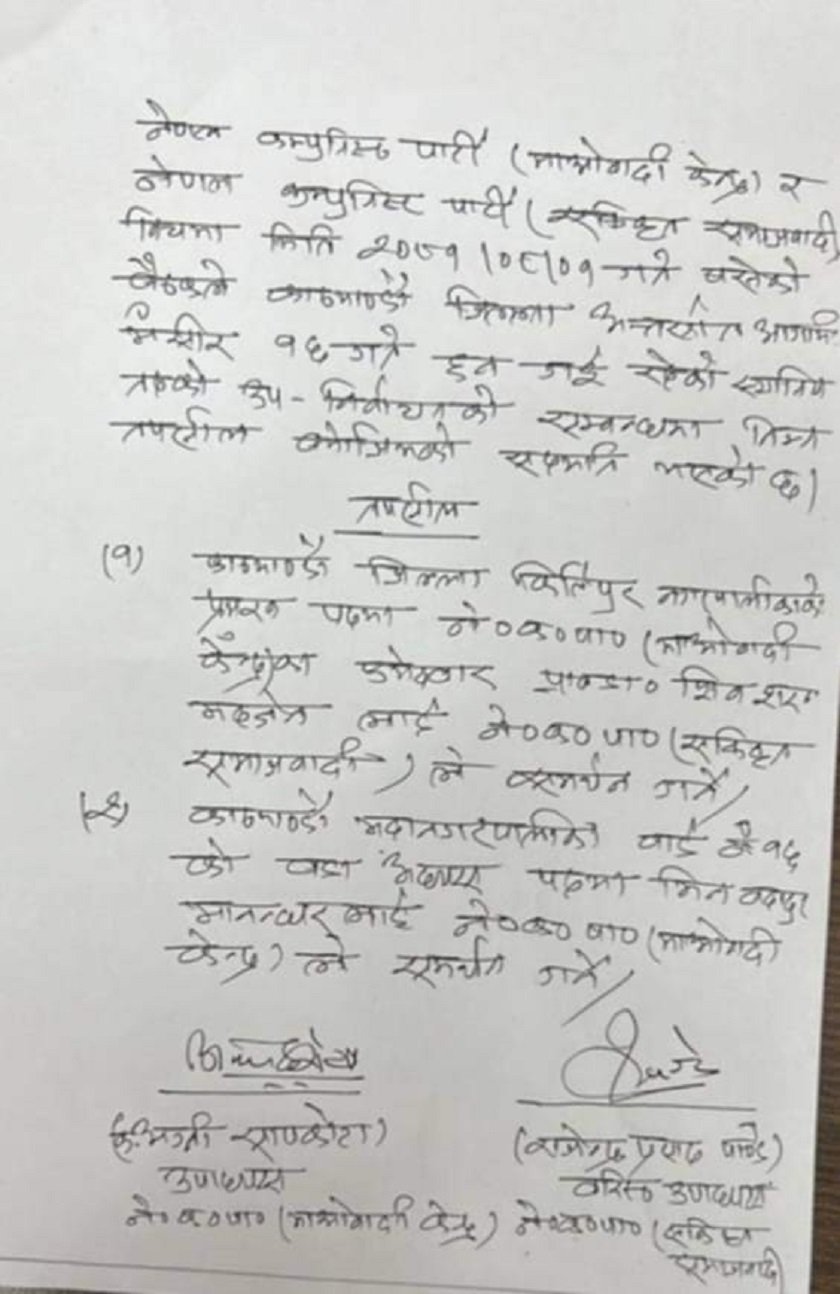 नेपाल कम्युनिस्ट पार्टी (माओवादी केन्द्र) र
नेपाल कम्युनिस्ट पार्टी (एकिकृत समाजवादी)
बिचमा मिति २०८१।०८।०१ गते बसेको
बैठकले काठमाण्डौ जिल्ला अन्तर्गत आगामि
मंसीर १६ गते हुन गई रहेको स्थानिय
तहको उप-निर्वाचनको सम्बन्धमा निम्न
तपशील बमोजिमको सहमति भएको छ।
तपशील
(१) काठमाण्डौ जिल्ला किर्तिपुर नगरपालीकाको
प्रमुख पदमा ने०क०पा० (माओवादी
केन्द्र)का उमेदवार प्रा०डा० शिव शरण
महर्जन लाई ने०क०पा० (एकिकृत
समाजवादी) ले समर्थन गर्ने/
(२) काठमाण्डौ महानगरपालिका वार्ड नं १६
को वडा अध्यक्ष पदमा मित बहादुर
मानन्धर लाई ने०क०पा० (माओवादी
केन्द्र) ले समर्थन गर्ने/
सापकोटा) (राजेन्द्र प्रसाद पाण्डे)
उपाध्यक्ष वरिष्ठ उपाध्यक्ष
ने०क०पा० (माओवादी केन्द्र) ने०क०पा० (एकिकृत
समाजवादी